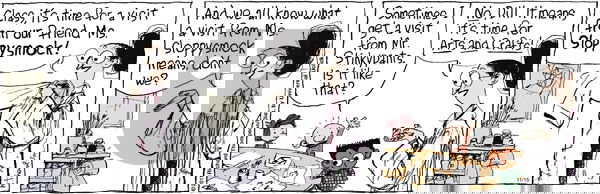 Class, it's time for a visit
from our friend Mr.
Sloppysmock!
And we all know what
a visit from Mr.
Sloppysmock
means, don't
we?
Sometimes I
get a visit
from Mr.
Stinkypants.
Is it like
that?
No, Will. It means
it's time for
Arts and Crafts!
11/15